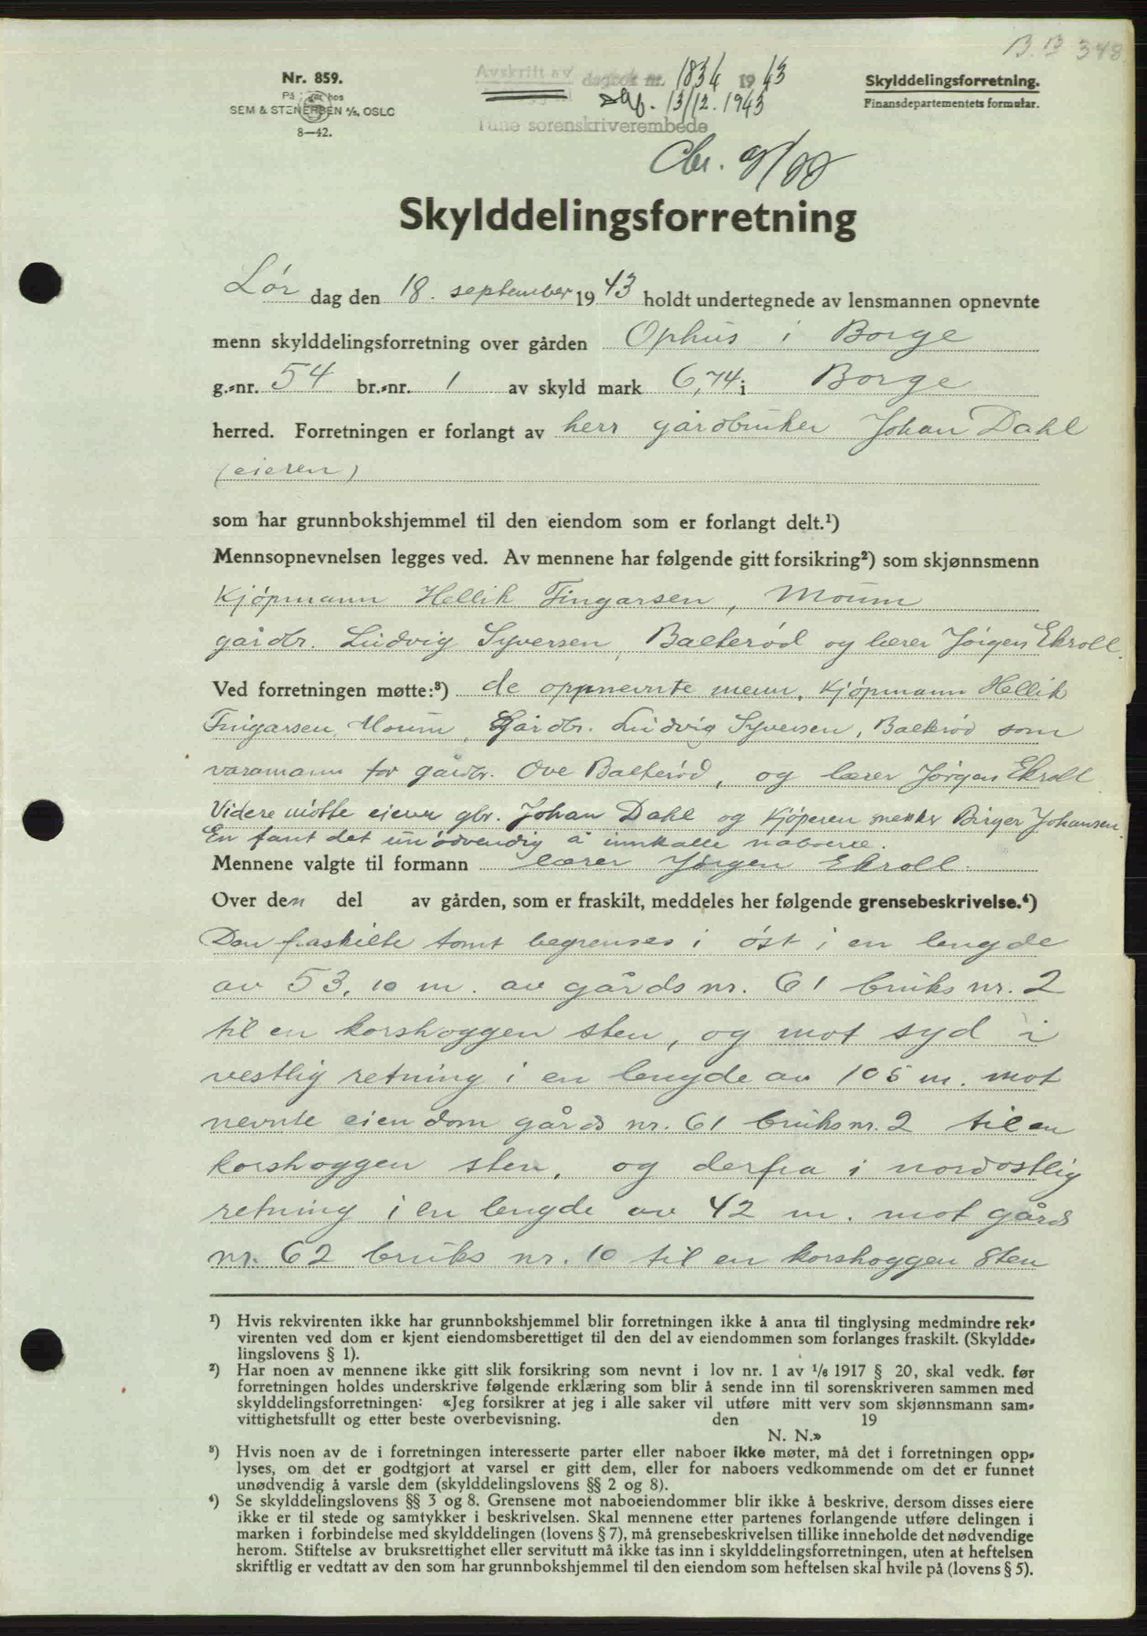 B.B 348
Nr. 859.
SEM & STENERSEN A/S, OSLO
8—42.
Avskrift av dagbok nr. 1834 1943
Dgb. 13/12. 1943
Tune sorenskriverembede
Skylddelingsforretning.
Finansdepartementets formular.
Skylddelingsforretning
Lør dag den 18. september 1943 holdt undertegnede av lensmannen opnevnte
menn skylddelingsforretning over gården Ophus i Borge
g.-nr. 54 br.-nr. 1 av skyld mark 6,74 i Borge
herred. Forretningen er forlangt av herr gårdbruker Johan Dahl
(eieren)
som har grunnbokshjemmel til den eiendom som er forlangt delt.¹)
Mennsopnevnelsen legges ved. Av mennene har følgende gitt forsikring²) som skjønnsmenn
Kjøpmann Hellik Fingarsen, Moum
gårdbr. Ludvig Syversen, Bakkerød og lærer Jørgen Ekroll.
Ved forretningen møtte:³) de oppnevnte menn, Kjøpmann Hellik
Fingarsen, Moum, Gårdbr. Ludvig Syversen, Bakkerød som
varamann for gårdbr. Ove Bakkerød, og lærer Jørgen Ekroll
Videre møtte eieren gbr. Johan Dahl og Kjøperen snekker Birger Johansen.
En fant det unødvendig å innkalle naboene.
Mennene valgte til formann lærer Jørgen Ekroll.
Over den del av gården, som er fraskilt, meddeles her følgende grensebeskrivelse.⁴)
Den fraskilte tomt begrenses i øst i en lengde
av 53,10 m. av gårds nr. 61 bruks nr. 2
til en korshoggen sten, og mot syd i
vestlig retning i en lengde av 105 m. mot
nevnte eiendom gårds nr. 61 bruks nr. 2 til en
korshoggen sten, og derfra i nordostlig
retning i en lengde av 42 m. mot gårds
nr. 62 bruks nr. 10 til en korshoggen sten
¹) Hvis rekvirenten ikke har grunnbokshjemmel blir forretningen ikke å anta til tinglysing medmindre rek-
virenten ved dom er kjent eiendomsberettiget til den del av eiendommen som forlanges fraskilt. (Skyldde-
lingslovens § 1).
²) Har noen av mennene ikke gitt slik forsikring som nevnt i lov nr. 1 av ¹/₆ 1917 § 20, skal vedk. før
forretningen holdes underskrive følgende erklæring som blir å sende inn til sorenskriveren sammen med
skylddelingsforretningen: «Jeg forsikrer at jeg i alle saker vil utføre mitt verv som skjønnsmann sam-
vittighetsfullt og etter beste overbevisning. den 19
N. N.»
³) Hvis noen av de i forretningen interesserte parter eller naboer ikke møter, må det i forretningen opp-
lyses, om det er godtgjort at varsel er gitt dem, eller for naboers vedkommende om det er funnet
unødvendig å varsle dem (skylddelingslovens §§ 2 og 8).
⁴) Se skylddelingslovens §§ 3 og 8. Grensene mot naboeiendommer blir ikke å beskrive, dersom disses eiere
ikke er til stede og samtykker i beskrivelsen. Skal mennene etter partenes forlangende utføre delingen i
marken i forbindelse med skylddelingen (lovens § 7), må grensebeskrivelsen tillike inneholde det nødvendige
herom. Stiftelse av bruksrettighet eller servitutt må ikke tas inn i skylddelingsforretningen, uten at heftelsen
skriftlig er vedtatt av den som har grunnbokshjemmel til den eiendom som heftelsen skal hvile på (lovens § 5).